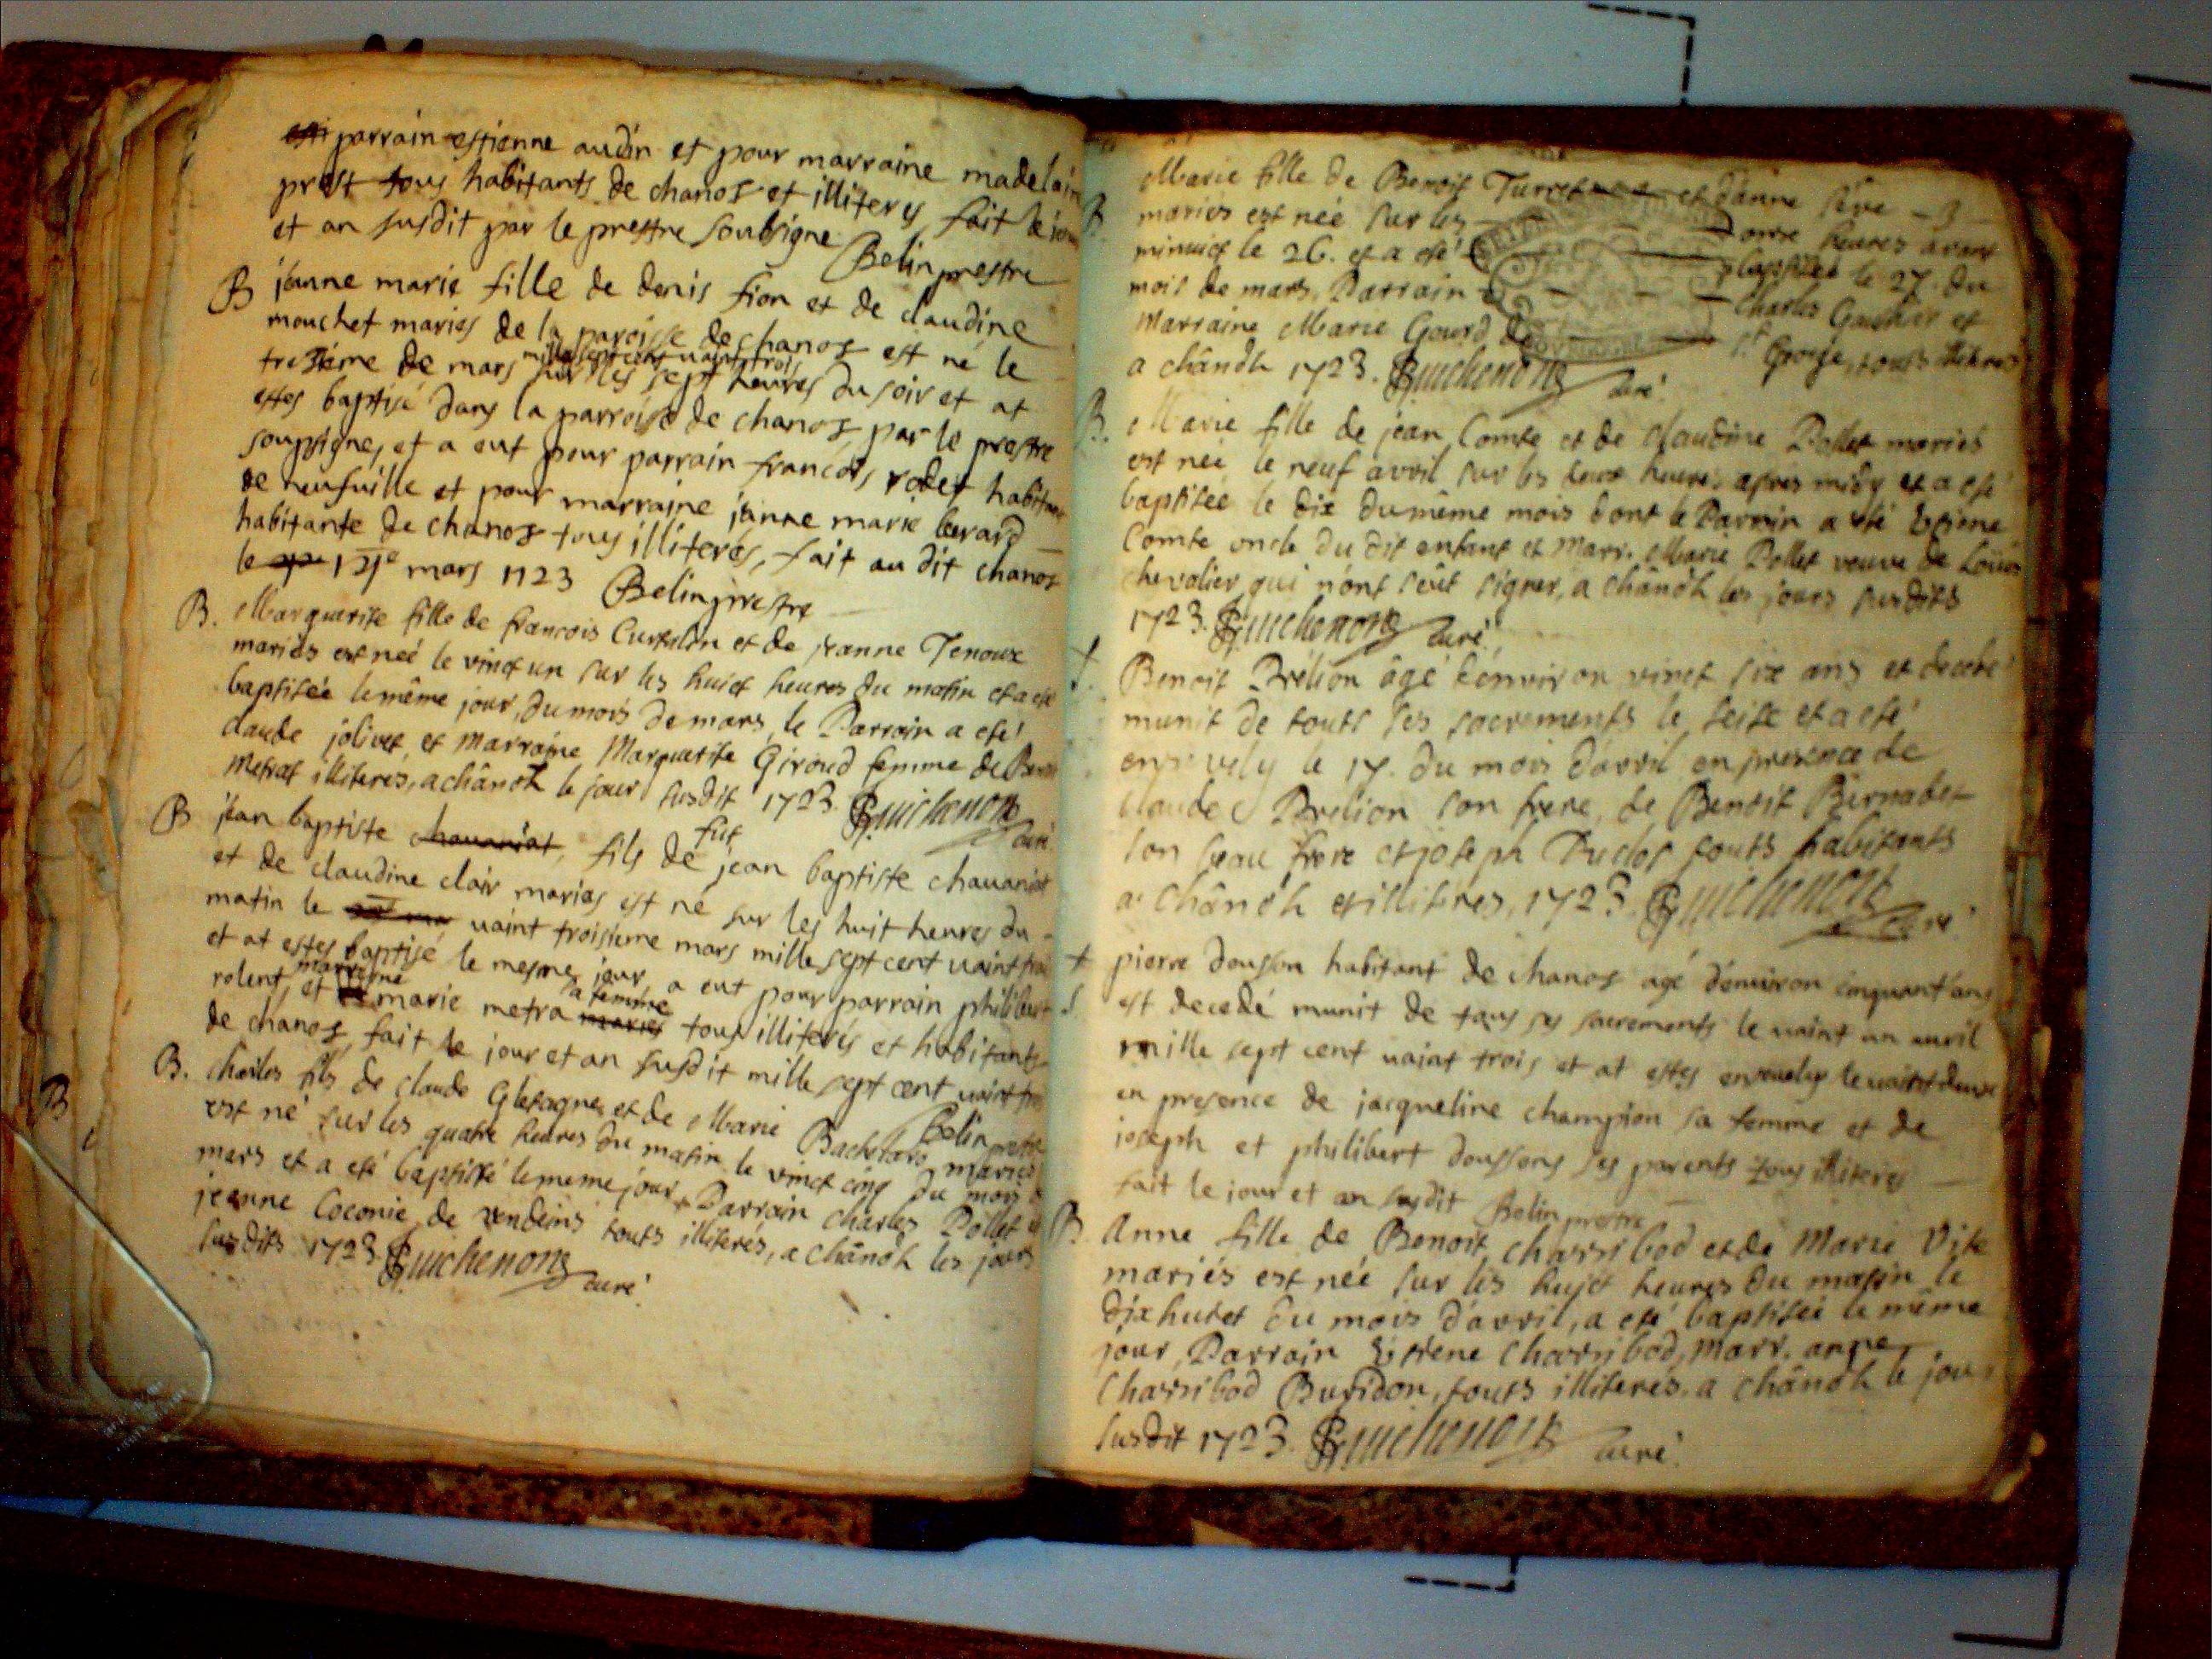 parrain estienne audin et pour marraine madelain
prost tous habitants de chanos et illiterés, fait le jour
et an susdit par le prestre soubsigne
Belin prestre
B janne marie fille de denis fion et de claudine
mouchet maries de la paroisse de chanos est né le
tresiéme de mars mille sept cent vaint trois sur les sept heures du soir et at
estes baptisé dans la parroisse de chanos par le prestre
soupsigne, et a eut pour parrain francois rodet habitant
de neufuille et pour marraine janne marie berard
habitante de chanos tous illiterés, fait au dit chanos
le mars 1723 Belin prestre
B. Marguerite fille de francois Curtelin et de jeanne Tenoux
mariés est neé le vinct un sur les huict heures du matin et a esté
baptisée le même jour, du mois de mars, le Parrain a esté
claude jolivet et Marraine Marguerite Giroud femme de
Metrat illiterés, a chânoh le jour susdit 1723. Guichenon
curé
B jean baptiste chauaniat, fils de fut jean baptiste chauaniat
et de claudine clair maries est né sur les huit heures du
matin le vaint troisieme mars mille sept cent vaint trois
et at estes baptisé le mesme jour a eut pour parrain philibert
rolent, et marrene marie metra sa femme tous illiterés et habitants
de chanos, fait le jour et an susdit mille sept cent vaint trois
Belin prestre
B. charles fils de claude Gletagne et de Marie Bachelard mariés
est né sur les quatre heures du matin le vinct cinq du mois de
mars et a eté baptisé le meme jour, Parrain charles Pollet et
jeanne Coconie de vendeins touts illiterés, a chânoh les jours
susdits 1723 Guichenon curé
Marie fille de Benoit Turret et d'anne séve
B. mariés est née sur les onze heures avant
minuict le 26. et a esté baptisée le 27. du
mois de mars, Parrain Charles et
Marraine Marie Gourd de St George, touts illiterés
a chânoh 1723. Guichenon curé.
B. Marie fille de jean Comte et de claudine Pollet mariés
est née le neuf avril sur les deux heures apres midy et a esté
baptisée le dix du même mois dont le Parrain a eté Estiene
Comte oncle du dit enfant et Marr. Marie Pollet veuve de Loüis
chevalier qui n'ont seût signer, a chânoh les jours susdits
1723. Guichenon curé
† Benoit Brélion âgé d'environ vinct six ans et decedé
S. munit de touts ses sacrements le seise et a esté
ensevely le 17. du mois d'avril en presence de
claude Brelion son frere, de Benoit Bernadet
son beau frere et joseph Duclos touts habitants
a chânoh et illiteres, 1723. Guichenon
curé
† pierre dousson habitant de chanos agé d'enuiron cinquant'ans
S est decedé munit de tous ses sacrements le vaint un auril
mille sept cent vaint trois et at estes enseuely le vaint deux
en presence de jacqueline champion sa femme et de
joseph et philibert doussons ses parents tous illiteres
fait le jour et an susdit Belin prestre
B Anne fille de Benoit charribod et de Marie Vite
mariés est née sur les huict heures du matin le
dixhuict du mois d'avril, a eté baptisée le même
jour, Parrain Estiene Charribod, Marr. anne
Charribod Buridon, touts illiterés. a chânoh le jour
susdit 1723. Guichenon curé.